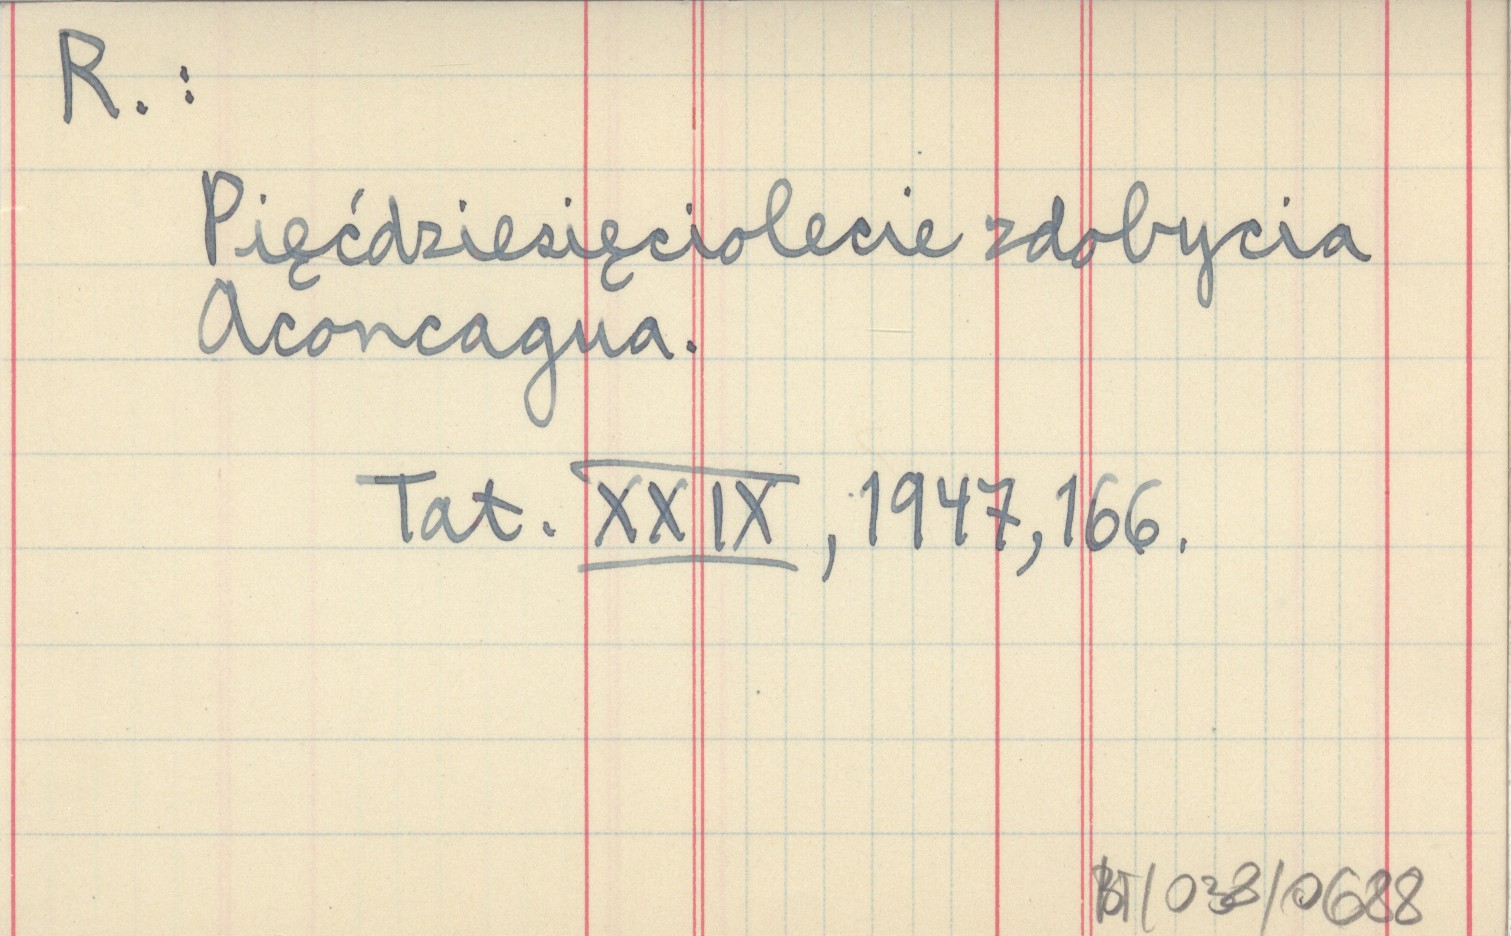 R.:
Pięćdziesięciolecie zdobycia
Aconcagua.
Tat. XXIX, 1947, 166.
BT/038/0688